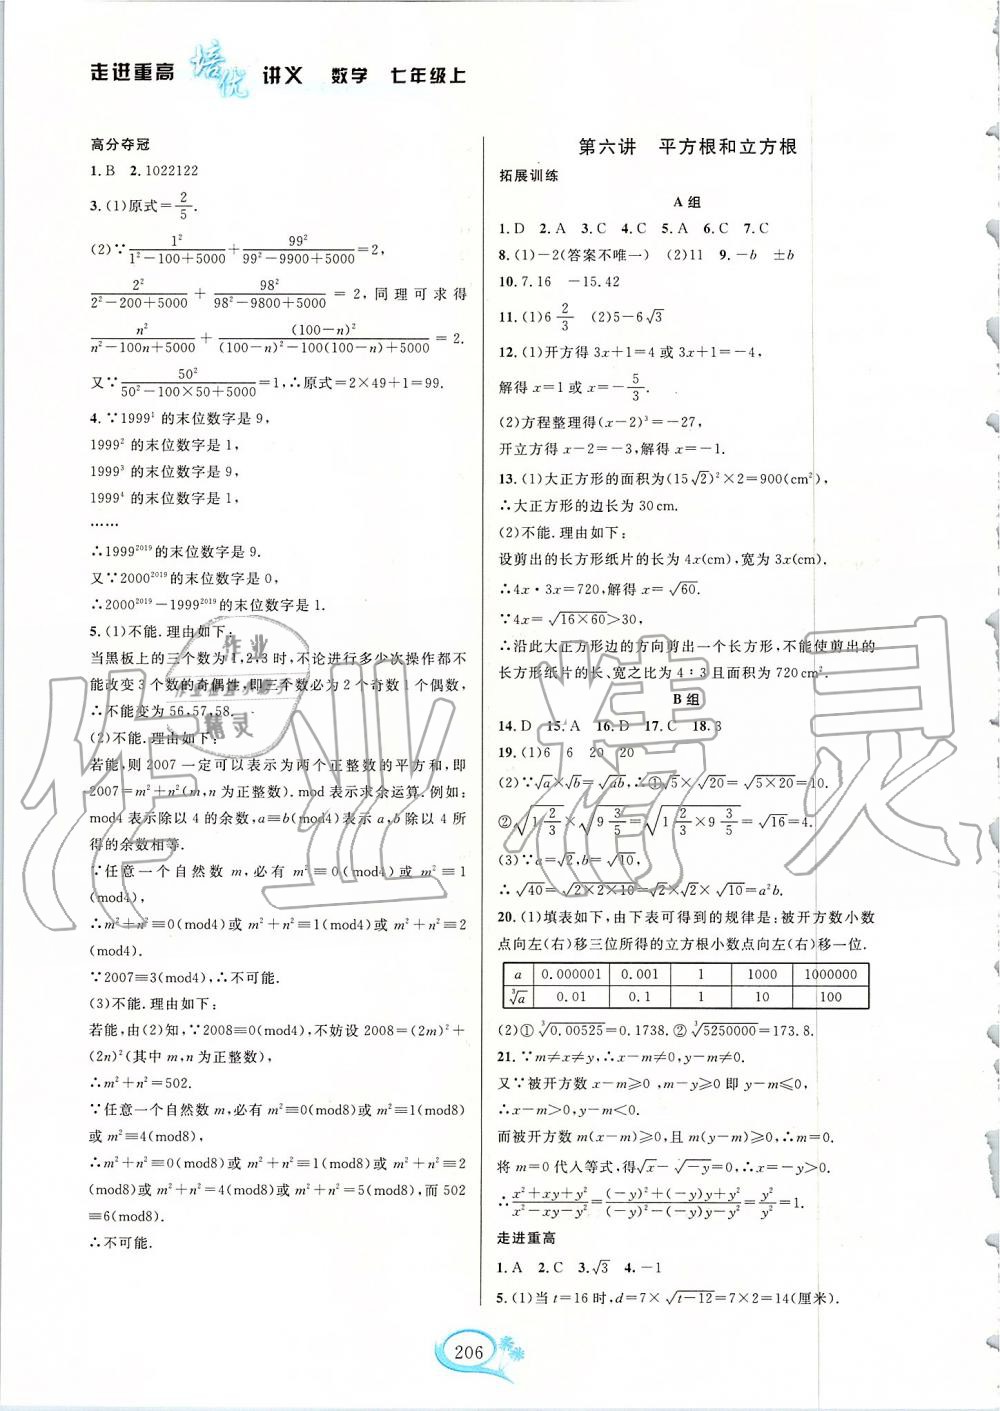 走进重高 培优 讲义 数学 七年级上
高分夺冠
1. B 2. 1022122
3. (1)原式=2/5.
(2)∵1²/(1²−100+5000)+99²/(99²−9900+5000)=2,
2²/(2²−200+5000)+98²/(98²−9800+5000)=2,同理可求得
n²/(n²−100n+5000)+(100−n)²/((100−n)²−100(100−n)+5000)=2.
又∵50²/(50²−100×50+5000)=1,∴原式=2×49+1=99.
4. ∵1999¹ 的末位数字是 9,
1999² 的末位数字是 1,
1999³ 的末位数字是 9,
1999⁴ 的末位数字是 1,
……
∴1999²⁰¹⁹的末位数字是 9.
又∵2000²⁰¹⁹的末位数字是 0,
∴2000²⁰¹⁹−1999²⁰¹⁹的末位数字是 1.
5. (1)不能.理由如下:
当黑板上的三个数为 1,2,3 时,不论进行多少次操作都不
能改变 3 个数的奇偶性,即三个数必为 2 个奇数 1 个偶数,
∴不能变为 56,57,58.
(2)不能.理由如下:
若能,则 2007 一定可以表示为两个正整数的平方和,即
2007=m²+n²(m,n 为正整数). mod 表示求余运算.例如:
mod4 表示除以 4 的余数,a≡b(mod4)表示 a,b 除以 4 所
得的余数相等.
∵任意一个自然数 m,必有 m²≡0(mod4)或 m²≡1
(mod4),
∴m²+n²≡0(mod4)或 m²+n²≡1(mod4)或 m²+n²≡2
(mod4).
∵2007≡3(mod4),∴不可能.
(3)不能.理由如下:
若能,由(2)知,∵2008≡0(mod4),不妨设 2008=(2m)²+
(2n)²(其中 m,n 为正整数),
∴m²+n²=502.
∵任意一个自然数 m,必有 m²≡0(mod8)或 m²≡1(mod8)
或 m²≡4(mod8),
∴m²+n²≡0(mod8)或 m²+n²≡1(mod8)或 m²+n²≡2
(mod8)或 m²+n²≡4(mod8)或 m²+n²≡5(mod8),而 502
≡6(mod8).
∴不可能.
第六讲 平方根和立方根
拓展训练
A 组
1. D 2. A 3. C 4. C 5. A 6. C 7. C
8. (1)−2(答案不唯一) (2)11 9. −b ±b
10. 7.16 −15.42
11. (1)6 2/3 (2)5−6√3
12. (1)开方得 3x+1=4 或 3x+1=−4,
解得 x=1 或 x=−5/3.
(2)方程整理得(x−2)³=−27,
开立方得 x−2=−3,解得 x=−1.
13. (1)大正方形的面积为(15√2)²×2=900(cm²),
∴大正方形的边长为 30 cm.
(2)不能.理由如下:
设剪出的长方形纸片的长为 4x(cm),宽为 3x(cm).
∴4x·3x=720,解得 x=√60.
∵4x=√(16×60)>30,
∴沿此大正方形边的方向剪出一个长方形,不能使剪出的
长方形纸片的长、宽之比为 4∶3 且面积为 720 cm².
B 组
14. D 15. A 16. D 17. C 18. 3
19. (1)6 6 20 20
(2)∵√a×√b=√(ab),∴①√5×√20=√(5×20)=10.
②√(1 2/3)×√(9 3/5)=√(1 2/3×9 3/5)=√16=4.
(3)∵a=√2,b=√10,
∴√40=√(2×2×10)=√2×√2×√10=a²b.
20. (1)填表如下,由下表可得到的规律是:被开方数小数
点向左(右)移三位所得的立方根小数点向左(右)移一位.
a 0.000001 0.001 1 1000 1000000
∛a 0.01 0.1 1 10 100
(2)①∛0.00525=0.1738. ②∛5250000=173.8.
21. ∵m≠x≠y,∴x−m≠0,y−m≠0.
又∵被开方数 x−m≥0,m−y≥0 即 y−m≤0,
∴x−m>0,y−m<0.
而被开方数 m(x−m)≥0,且 m(y−m)≥0,∴m=0.
将 m=0 代入等式,得√x−√(−y)=0,∴x=−y>0.
∴(x²+xy+y²)/(x²−xy−y²)=((−y)²+(−y)y+y²)/((−y)²−(−y)y−y²)=y²/y²=1.
走进重高
1. A 2. C 3. √3 4. −1
5. (1)当 t=16 时,d=7×√(t−12)=7×2=14(厘米).
206
作业精灵
作业
精灵